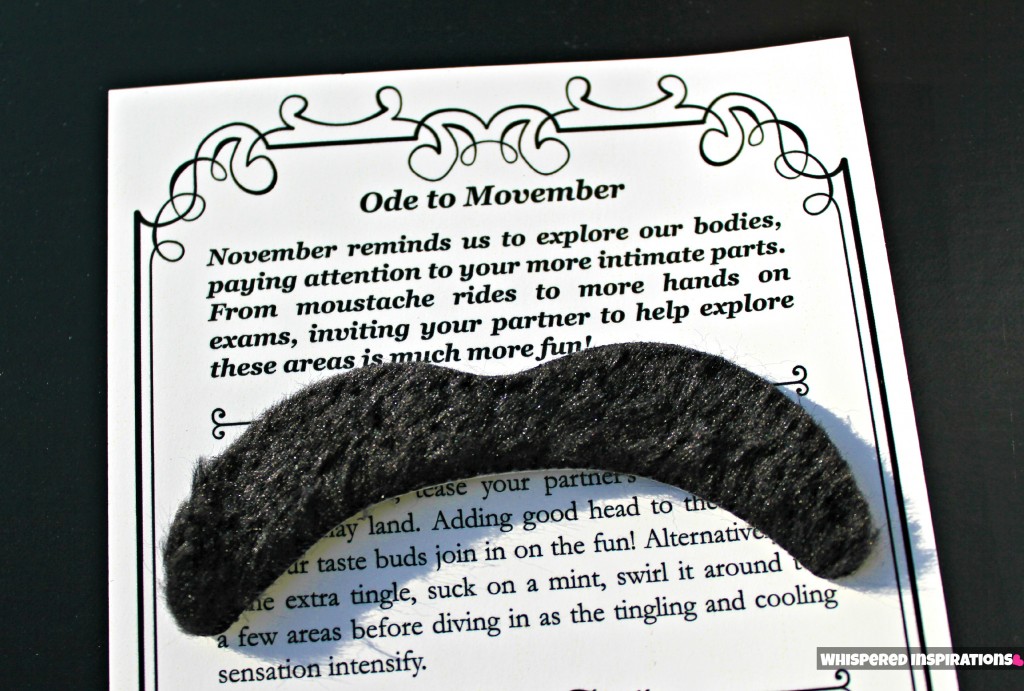 Ode to Movember
November reminds us to explore our bodies,
paying attention to your more intimate parts.
From moustache rides to more hands on
exams, inviting your partner to help explore
these areas is much more fun!
tease your partner's
land. Adding good head to the
taste buds join in on the fun!
extra tingle, suck on a mint, swirl it around
a few areas before diving in as the tingling and cooling
sensation intensify.
WHISPERED INSPIRATIONS